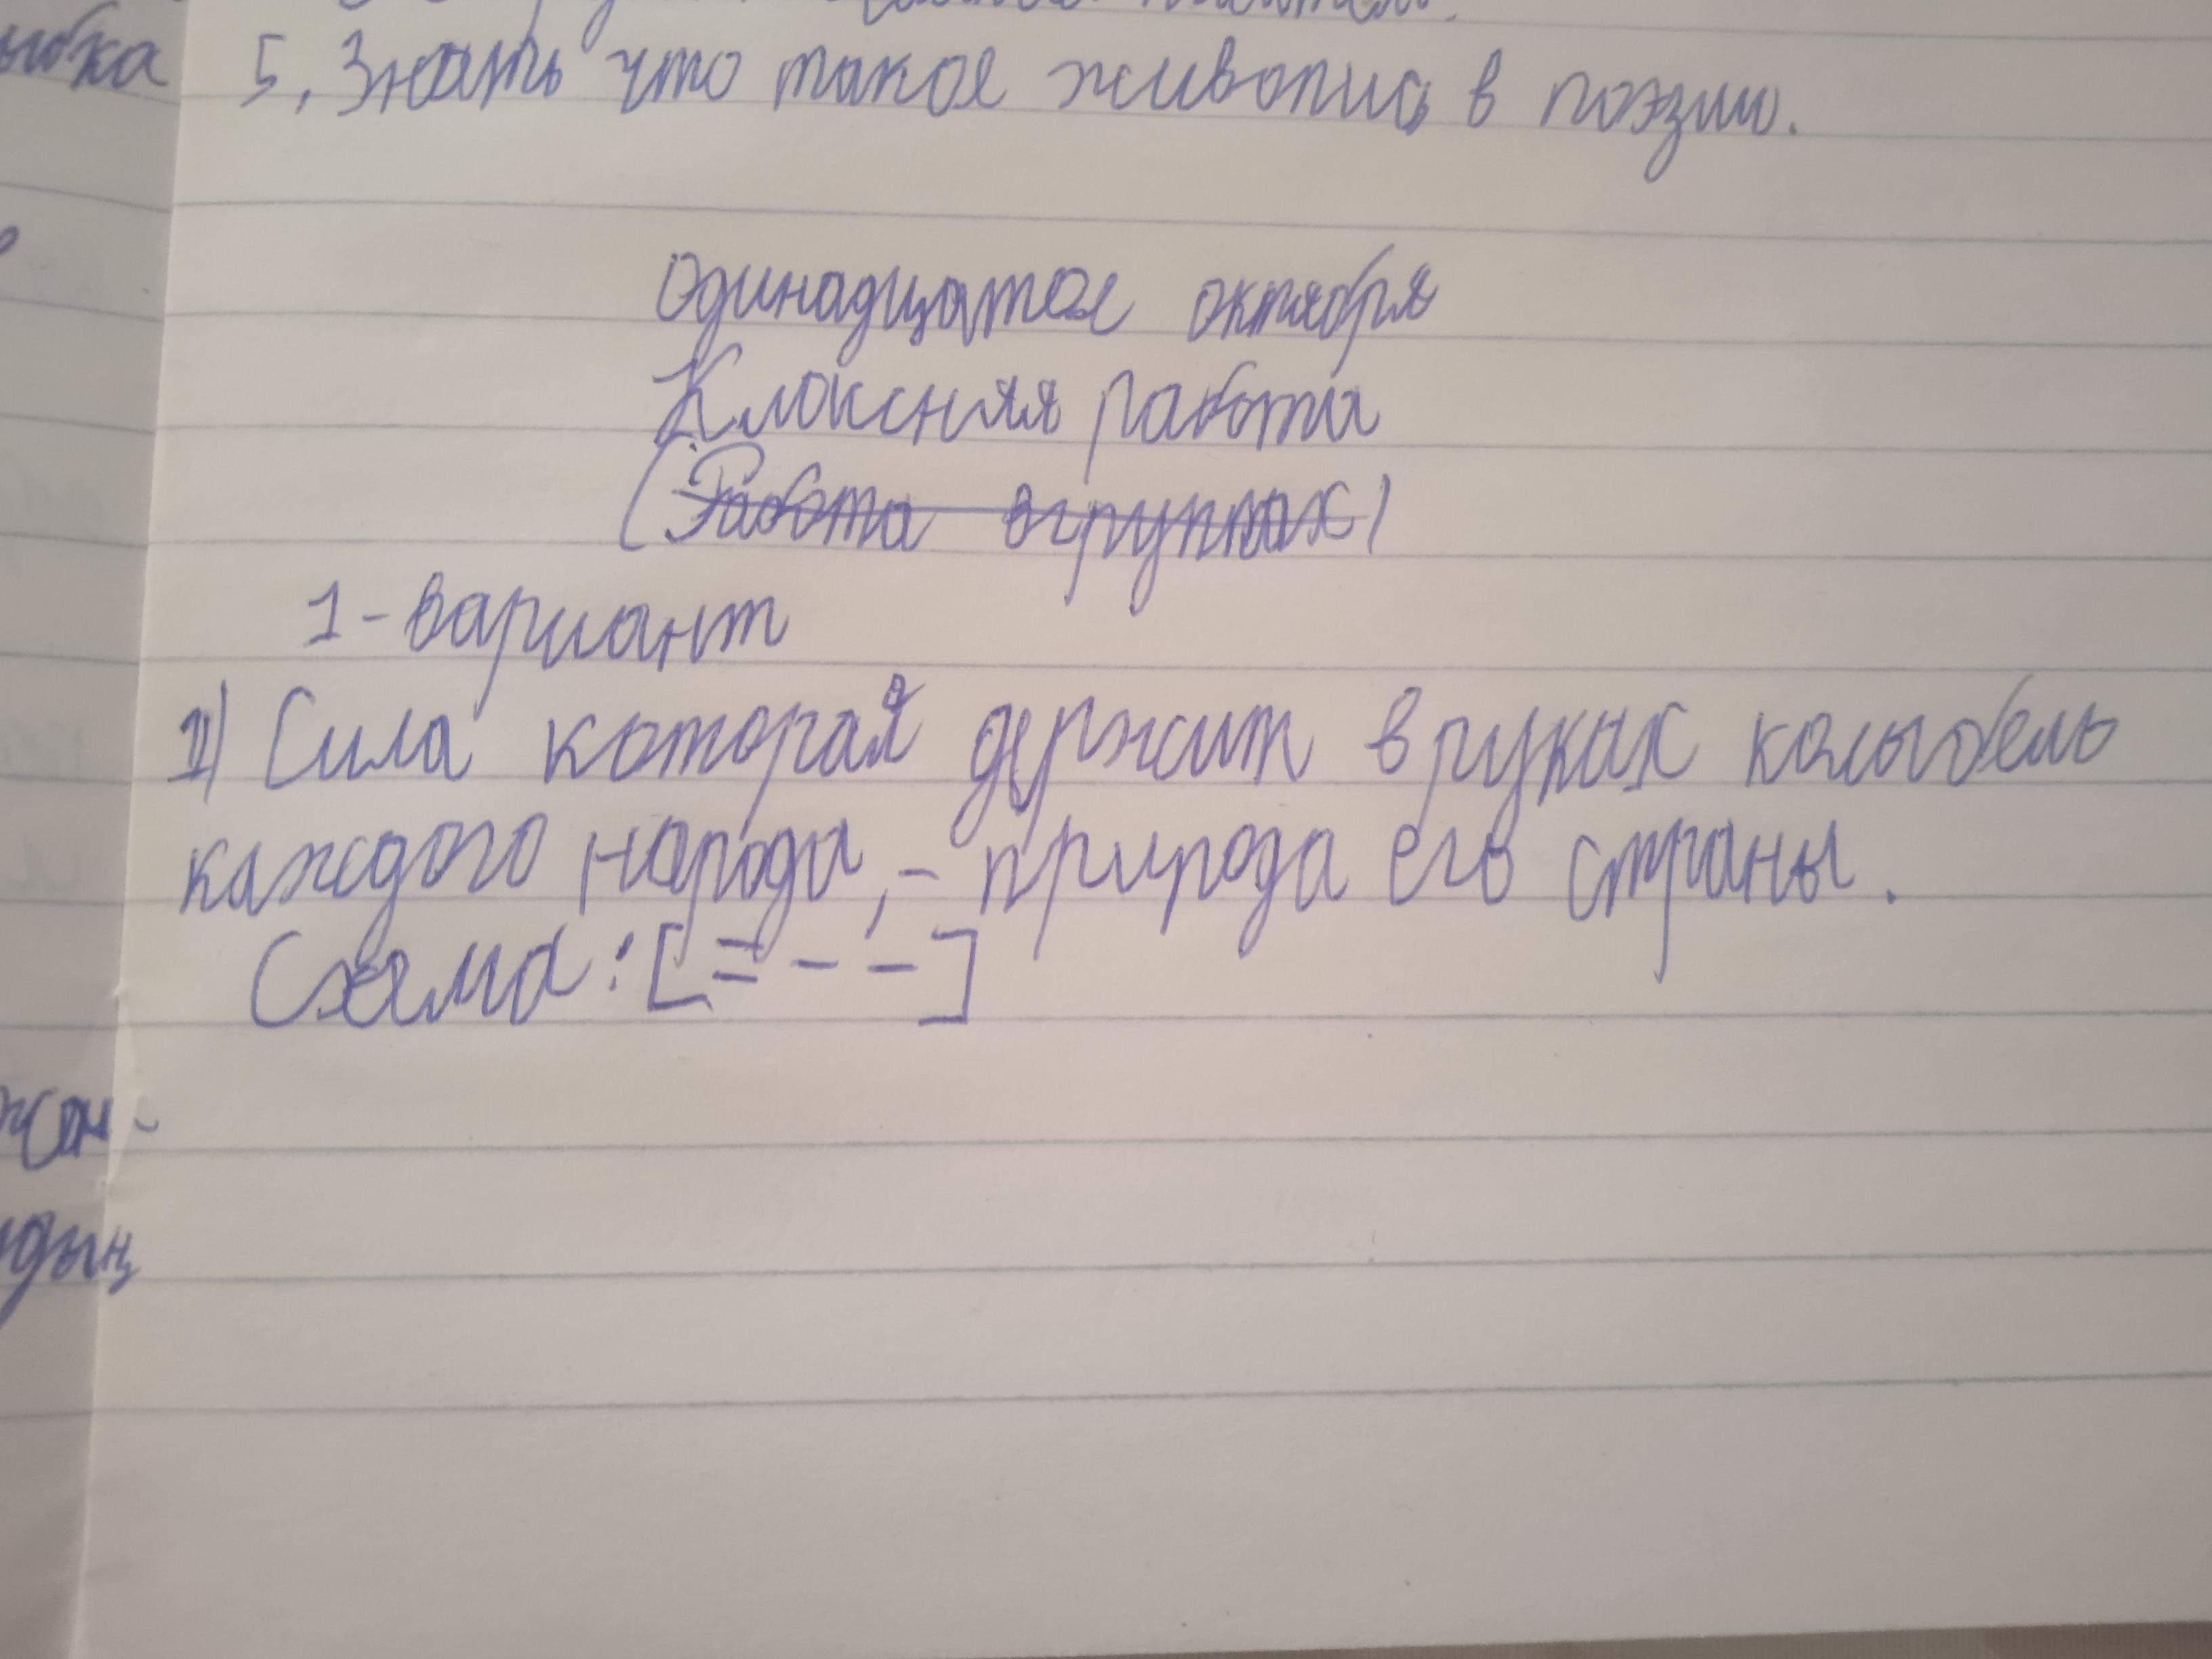 5. Знать что такое живопись в поэзии.
одинадцатое октября
Клокснняя работа
(Работа вгруппах)
1-вариант
1) Сила которая держит в руках колыбель
каждого народа,- природа его страны.
Схема: [= - -]
ыбка
жон-
дың